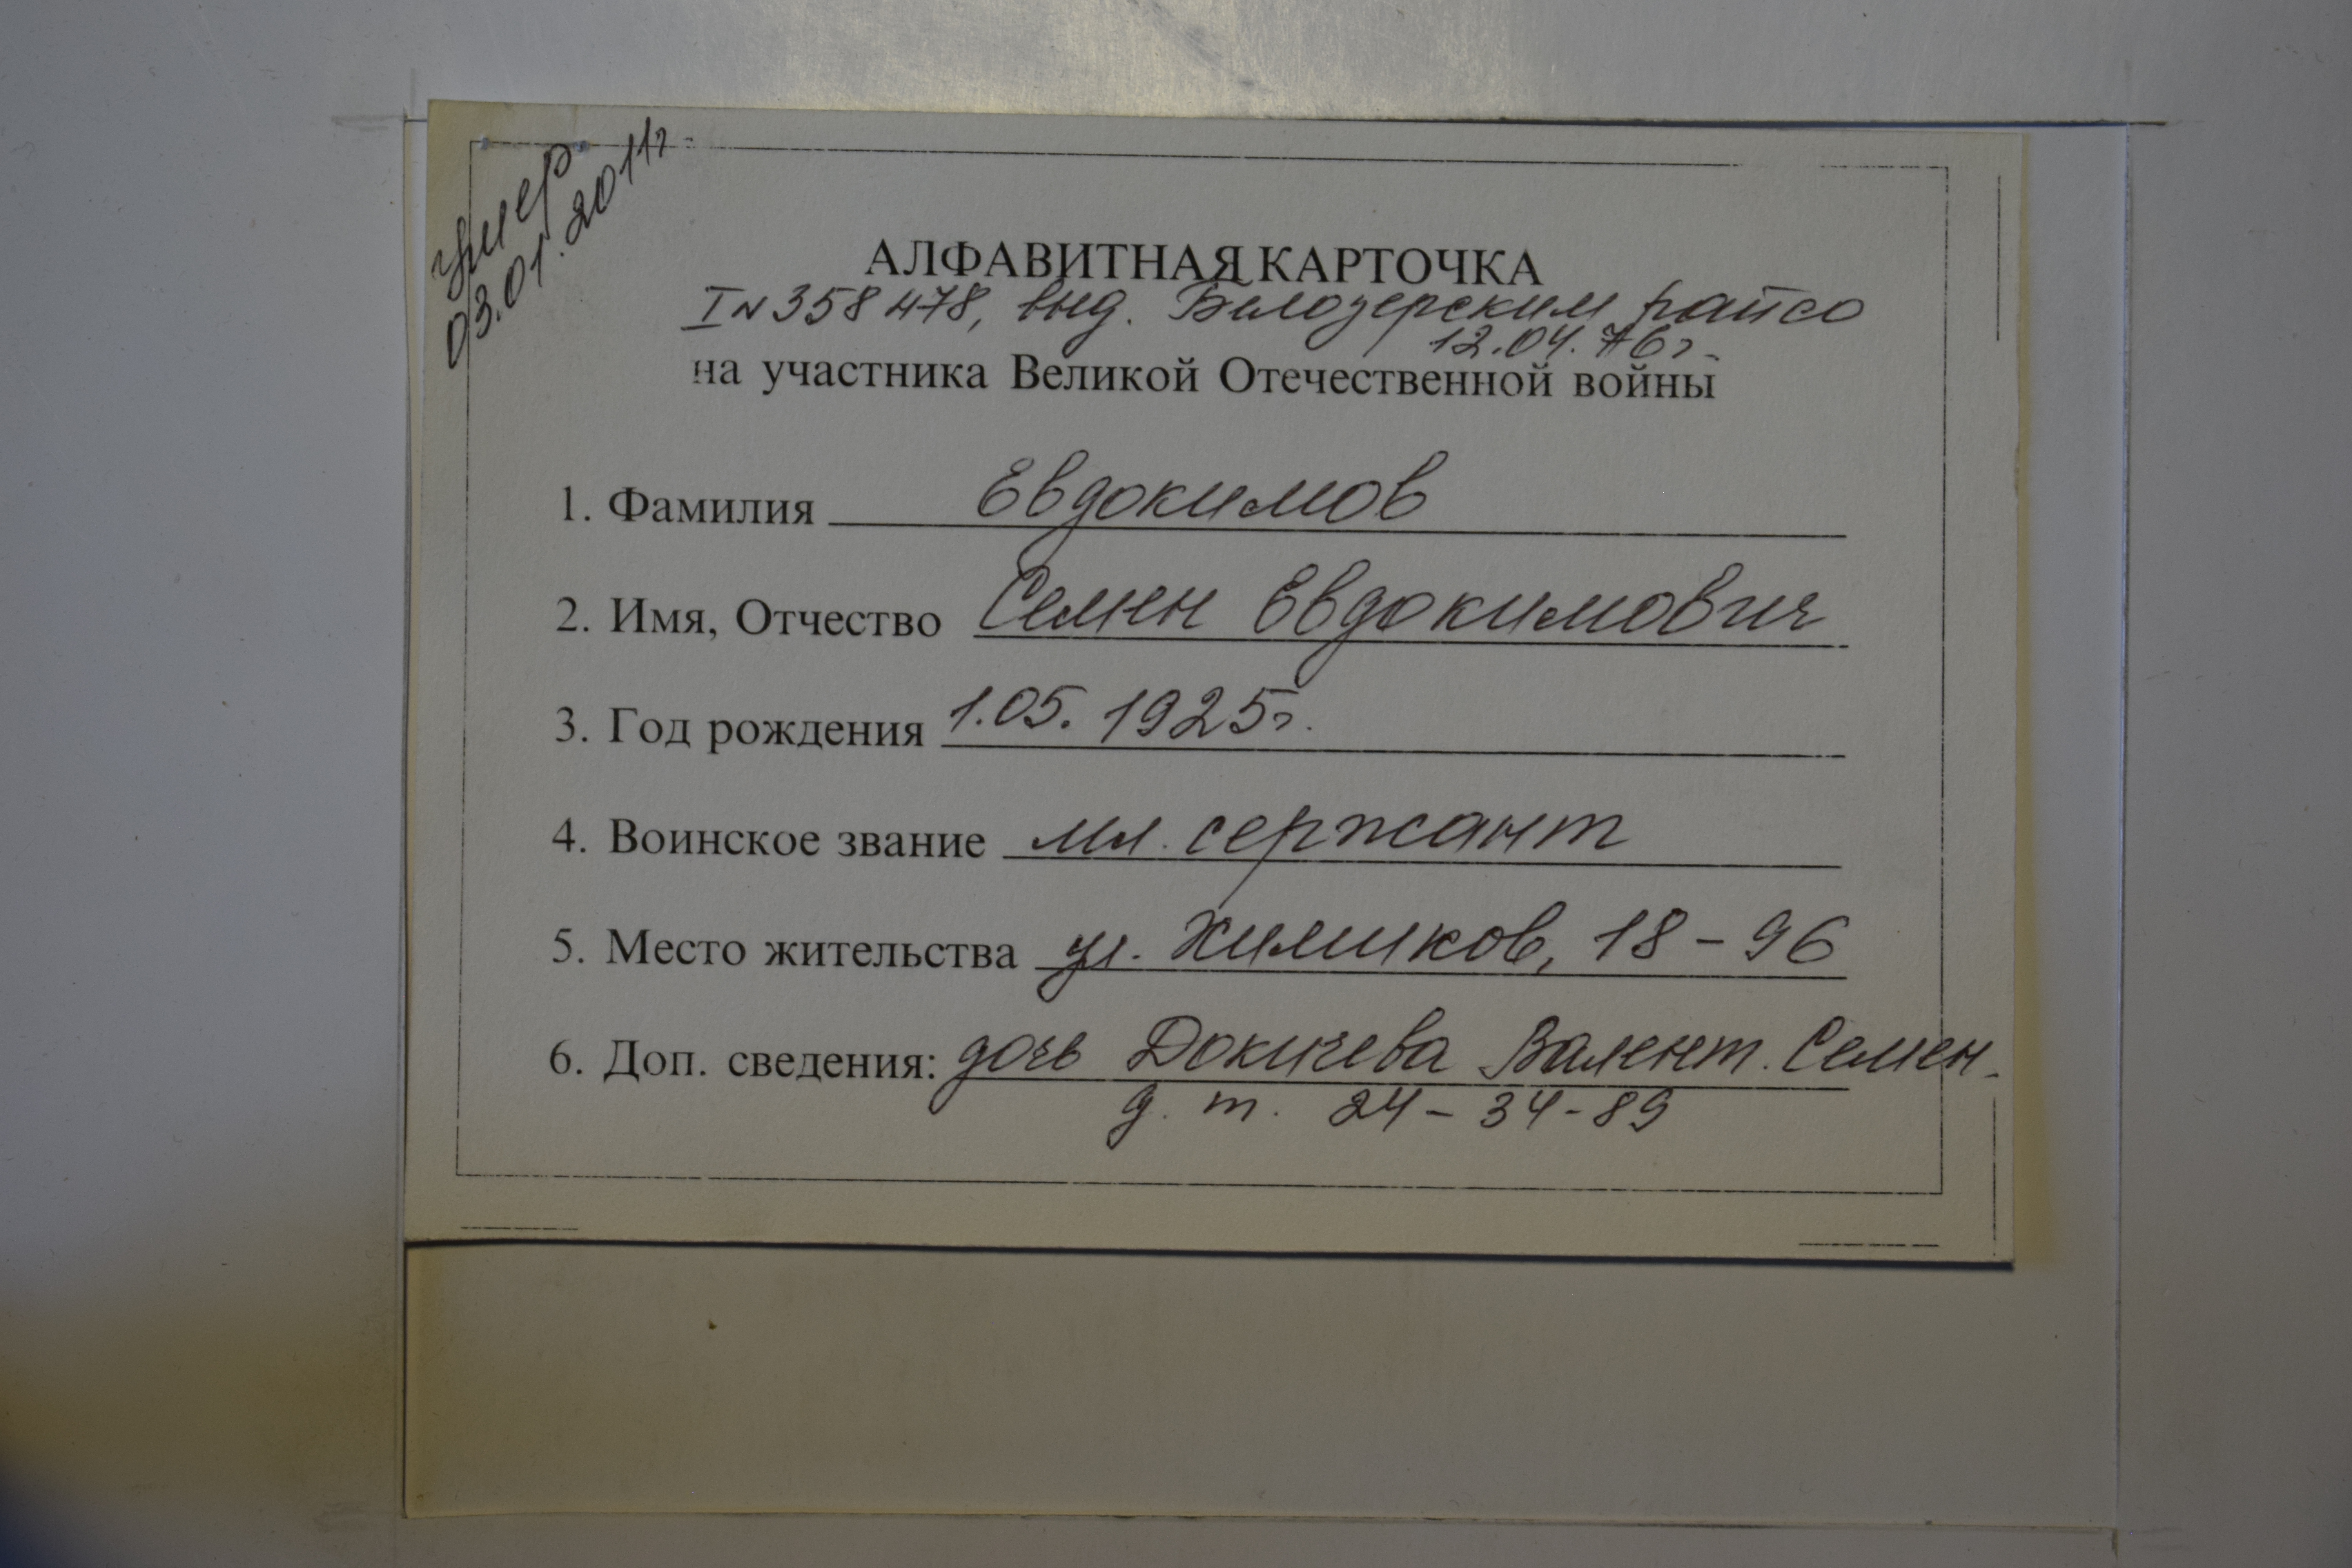 умер
03.01.2011г
АЛФАВИТНАЯ КАРТОЧКА
I N 358478, выд. Белозерским райсо
12.04.76г.
на участника Великой Отечественной войны
1. Фамилия Евдокимов
2. Имя, Отчество Семен Евдокимович
3. Год рождения 1.05.1925г.
4. Воинское звание мл. сержант
5. Место жительства ул. Химиков, 18-96
6. Доп. сведения: дочь Докичева Валент. Семен.
д. т. 24-34-89